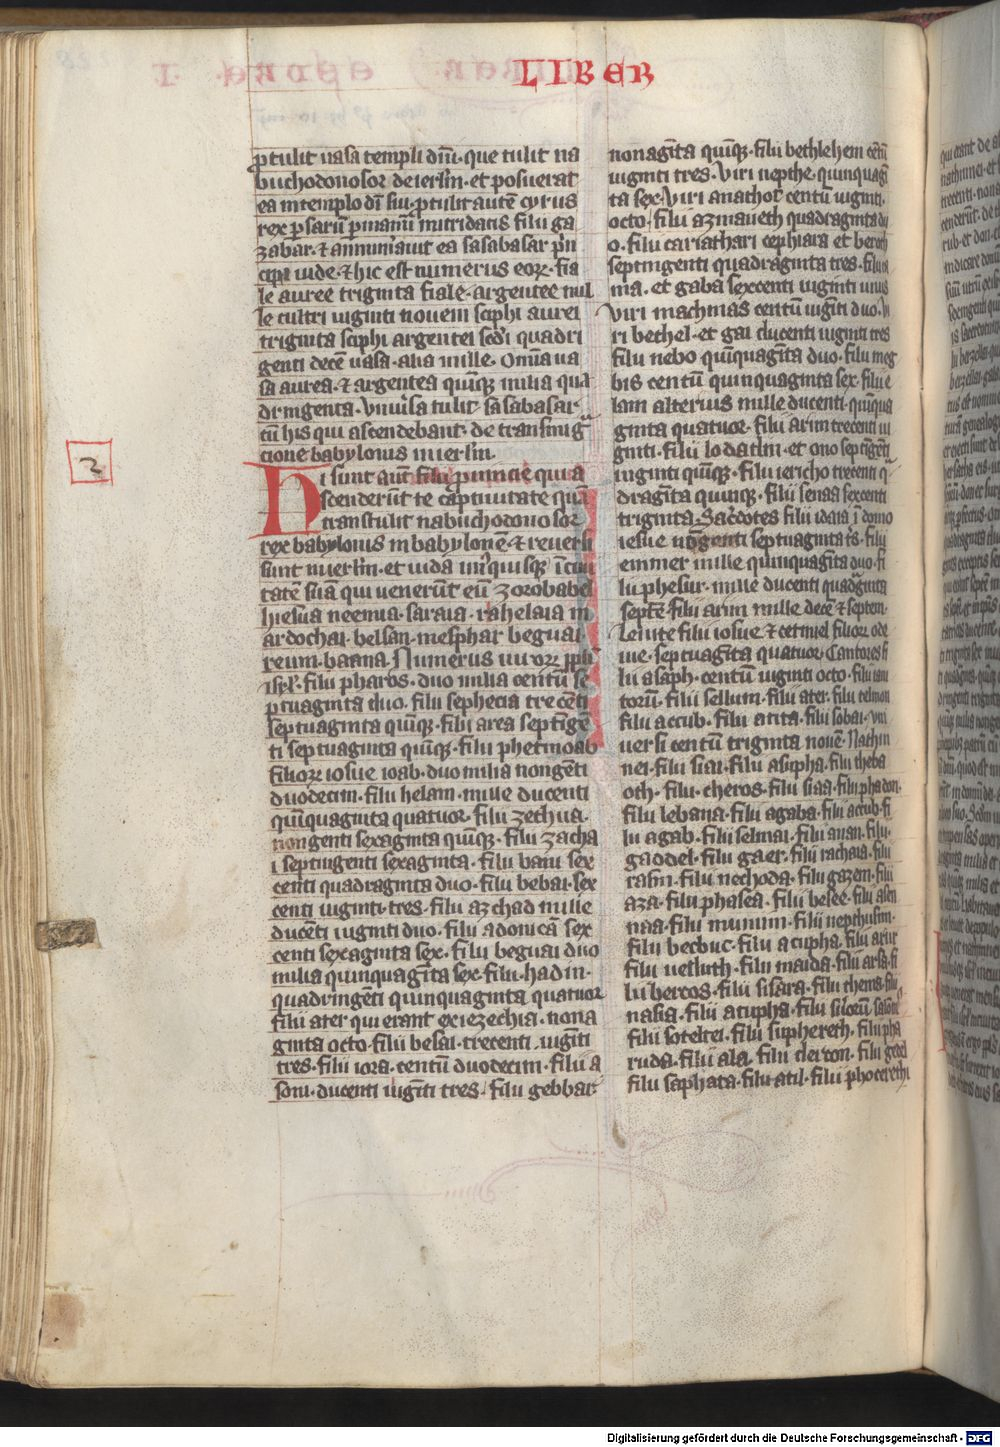 LIBER
ꝓtulit uasa templi dn̄i · que tulit na
buchodonosor de ierl̄m · et posuerat
ea in templo dī sui · ꝓtulit autē cyrus
rex ꝑsarū ꝑ manū mitridatis filii ga
zabar · ⁊ annūm̄auit ea sasabasar p̄n
cipi iude · ⁊ hic est numerus eoꝝ · fia
le auree triginta fiale · argentee mil
le cultri uiginti nouem sciphi aurei
triginta sciphi argentei scd̄i quadri
genti decē uasa · alia mille · Omīa ua
sa aurea · ⁊ argentea quīqꝫ milia qua
dringenta · Vniūsa tulit sasabasar
cū his qui ascendebant · de transmigͣ
cione babylonis in ierl̄m ·
2
Hi sunt aūt filii prouincie qui a
scenderūt de captiuitate quā
transtulit nabuchodonosor
rex babylonis in babylonē · ⁊ reuersi
sunt in ierl̄m · et iuda unꝰquisqꝫ ī ciui
tatē suā qui uenerūt cū zorobabel
hiesua neemia · saraia · rahelaia m
ardochai · belsan · mesphar beguai ·
reum · baana · Numerus uiroꝝ ppl̄i
isrl̄ · filii pharos · duo milia centū se
ptuaginta duo · filii sephecia trecēti
septuaginta quīqꝫ · filii area septīgē
ti septuaginta quīqꝫ · filii phetmoab
filioꝝ iosue ioab · duo milia nongēti
duodecim · filii helam · mille ducenti
quīquaginta quatuor · filii zechua ·
nongenti sexaginta quīqꝫ · filii zacha
i septingenti sexaginta · filii bani sex
centi quadraginta duo · filii bebai · sex
centi uiginti · tres · filii azchad mille
ducēti uiginti duo · filii adonicā sex
centi sexaginta sex · filii beguai duo
milia quinquagīta sex · filii · hadin ·
quadringēti quinquaginta quatuor
filii ater qui erant ex iezechia · nona
ginta octo · filii besai · trecenti · uigīti
tres · filii iora · centū duodecim · filii a
som · ducenti uigīti tres · filii gebbar ·
nonagīta quīqꝫ · filii bethlehem cētū
uiginti tres · Viri nepthe · quinquagī
ta sex · Viri anathot centū uiginti ·
octo · filii azmaueth quadraginta du
o · filii cariathari cephiara et beroth
septingenti quadraginta tres · filii ra
ma · et gaba sexcenti uiginti unus
Viri machmas centū uigīti duo · Vi
ri bethel · et gai ducenti uiginti tres
filii nebo quīquagīta duo · filii meg
bis centū quinquaginta sex · filii e
lam alterius mille ducenti · quīqua
ginta quatuor · filii arim trecenti ui
ginti · filii lodadim · et ono septīgēti
uiginti quīqꝫ · filii iericho trecenti qͣ
draginta quinqꝫ · filii senaa sexcenti
triginta · Sac̄dotes filii idaia ī domo
iesue nōgenti septuaginta ts̄ · filii
emmer mille quinquagīta duo · fi
lii phesur · mille ducenti quadͣginta
septē · filii arim mille decē ⁊ septem
Leuite filii iosue · ⁊ cetmiel filioꝝ ode
uie · septuagīta quatuor · Cantores fi
lii asaph · centū uiginti octo · filii iani
torū · filii sellum · filii ater · filii telmon
filii accub · filii atita · filii sobai · vni
uersi centū triginta nouē · Nathin
nei · filii siai · filii asupha · filii theba
oth · filii · cheros · filii siaa · filii phadon ·
filii lebana · filii agaba · filii accub · fi
lii agab · filii selmai · filii anan · filii ·
gaddel · filii gaer · filii rachaia · filii
rasin · filii nechoda · filii gazem · filii
aza · filii phasea · filii besee · filii asen
naa · filii munim · filii nepthusim ·
filii becbuc · filii acupha · filii arur
filii uesluth · filii maida · filii arsa · fi
lii bercos · filii sisara · filii thema · filii
nasia · filii atupha · filii siloꝝ salom̄
filii sotelei · filii suphereth · filii pha
ruda · filii ala · filii dercon · filii gedel
filii saphata · filii atil · filii phocerethi
Digitalisierung gefördert durch die Deutsche Forschungsgemeinschaft - DFG